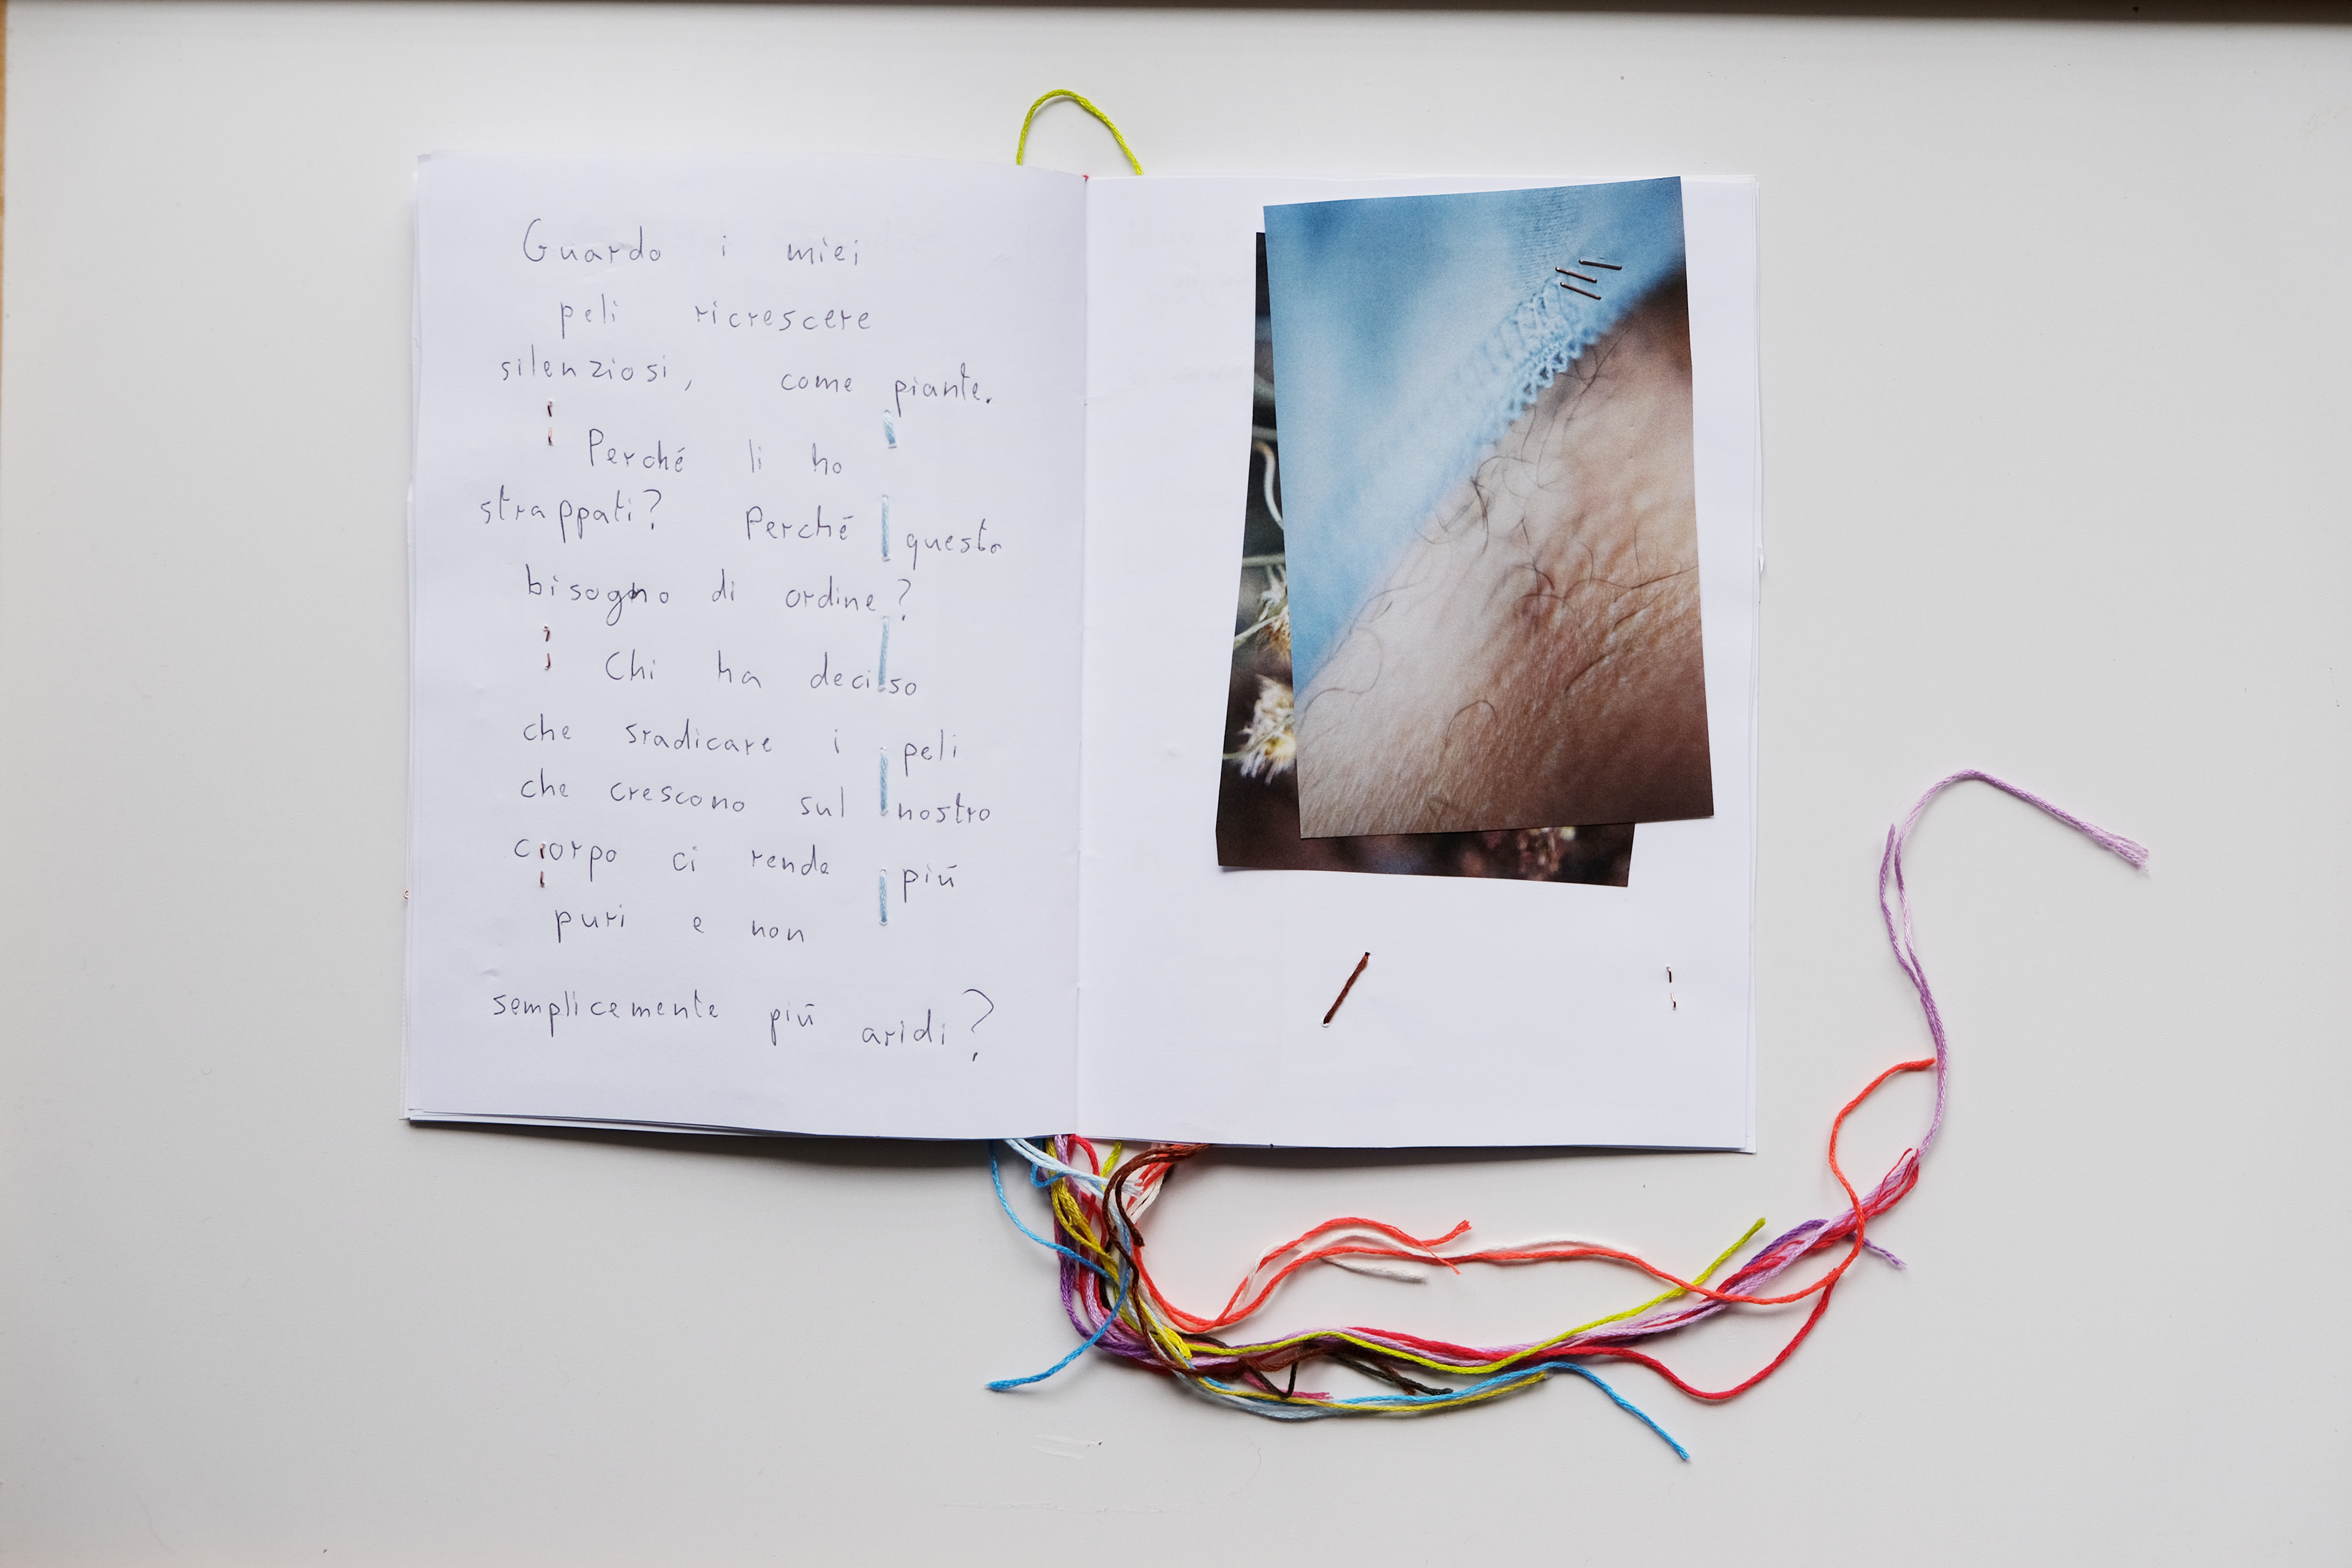 Guardo i miei
peli ricrescere
silenziosi, come piante.
Perché li ho
strappati? Perché questo
bisogno di ordine?
Chi ha deciso
che sradicare i peli
che crescono sul nostro
corpo ci renda più
puri e non
semplicemente più aridi?